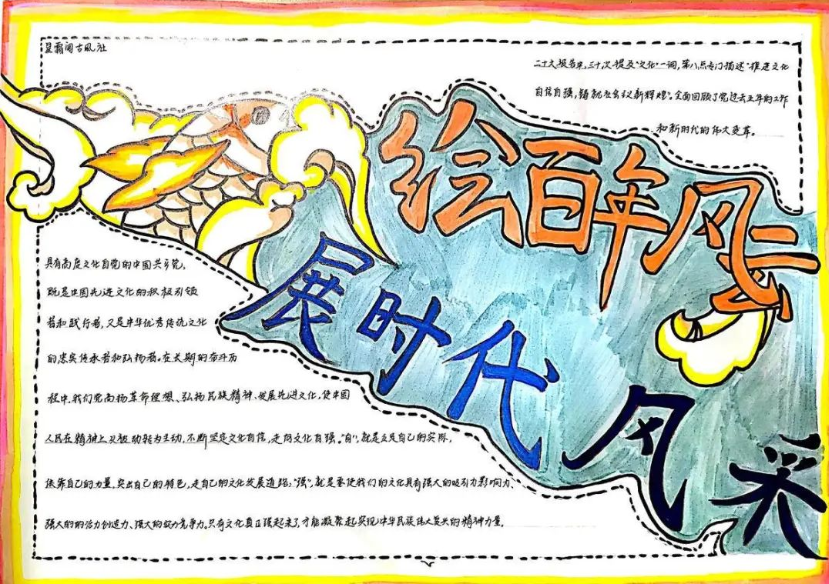 星霜阁古風社
二十大报告中,三十次提及"文化"一词,第八点专门描述"推进文化
自信自强,铸就社会主义新辉煌"。全面回顾了党过去五年的工作
和新时代的伟大变革。
绘百年风云
展时代风采
具有高度文化自觉的中国共产党,
既是中国先进文化的积极引领
者和践行者,又是中华优秀传统文化
的忠实传承者和弘扬者。在长期的奋斗历
程中,我们党高扬革命理想、弘扬民族精神、发展先进文化,使中国
人民在精神上从被动转为主动,不断坚定文化自信,走向文化自强。"自",就是立足自己的实际,
依靠自己的力量,突出自己的特色,走自己的文化发展道路;"强",就是要使我们的文化具有强大的吸引力影响力、
强大的的活力创造力、强大的实力竞争力。只有文化真正强起来了,才能凝聚起实现中华民族伟大复兴的精神力量。